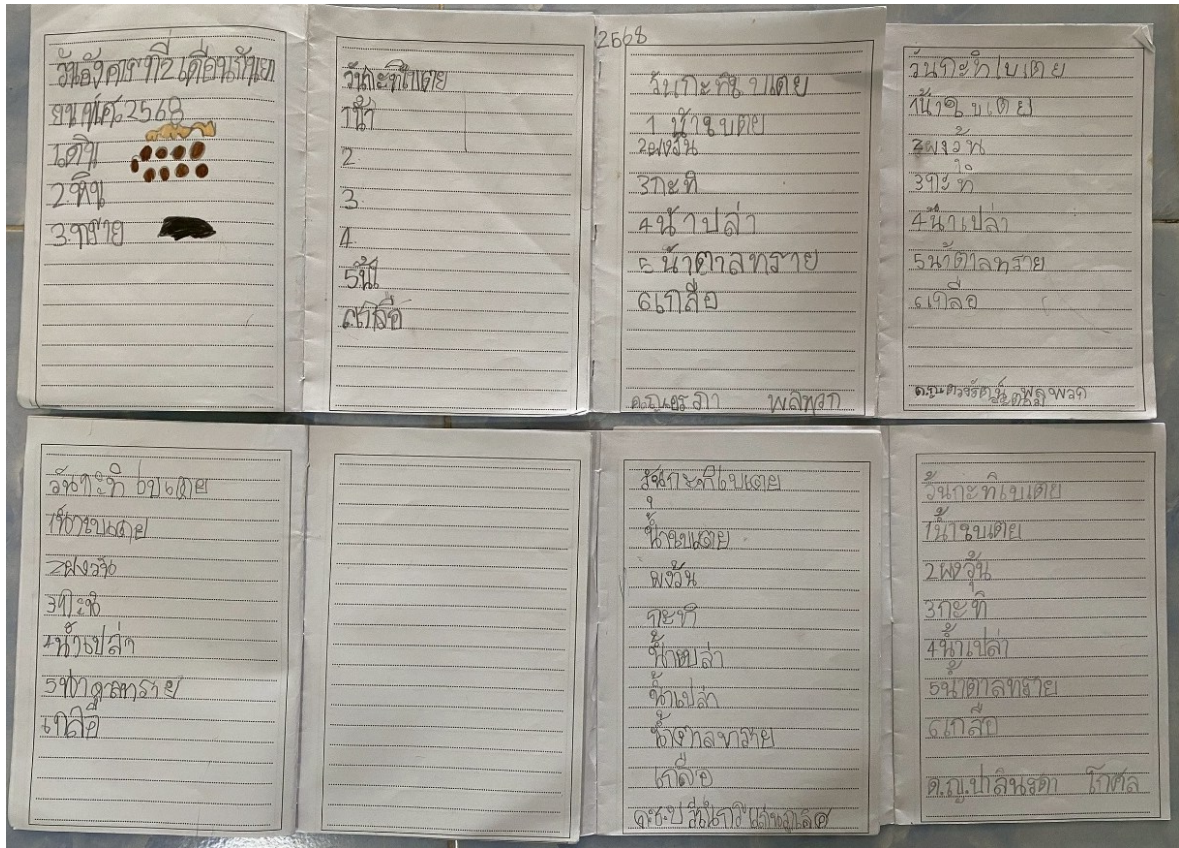 วันอังคารที่2เดือนกันยา
ยนพ.ศ.2568
1.ดิน
2.หิน
3.ทราย
วันกะทิใบเตย
1น้ำ
2.
3.
4.
5น้ำ
6เกลือ
2568
วันกะทิใบเตย
1 น้ำใบเตย
2ผงวุ้น
3กะทิ
4น้ำปล่า
5 น้ำตาลทราย
6เกลือ
พลพวก
วุ้นกะทิใบเตย
1น้ำใบเตย
2ผงวุ้น
3กะทิ
4น้ำเปล่า
5น้ำตาลทราย
6เกลือ
พลพวก
วุ้นกะทิ ใบเตย
1น้ำใบเตย
2ผงวุ้น
3กะทิ
4น้ำเปล่า
5น้ำตาลทราย
6เกลือ
วุ้นกะทิใบเตย
น้ำใบเตย
ผงวุ้น
กะทิ
น้ำเปล่า
น้ำเปล่า
น้ำตาลทราย
เกลือ
วุ้นกะทิใบเตย
1น้ำใบเตย
2ผงวุ้น
3กะทิ
4น้ำเปล่า
5น้ำตาลทราย
6เกลือ
ด.ญ.ปาลินรดา โกศล